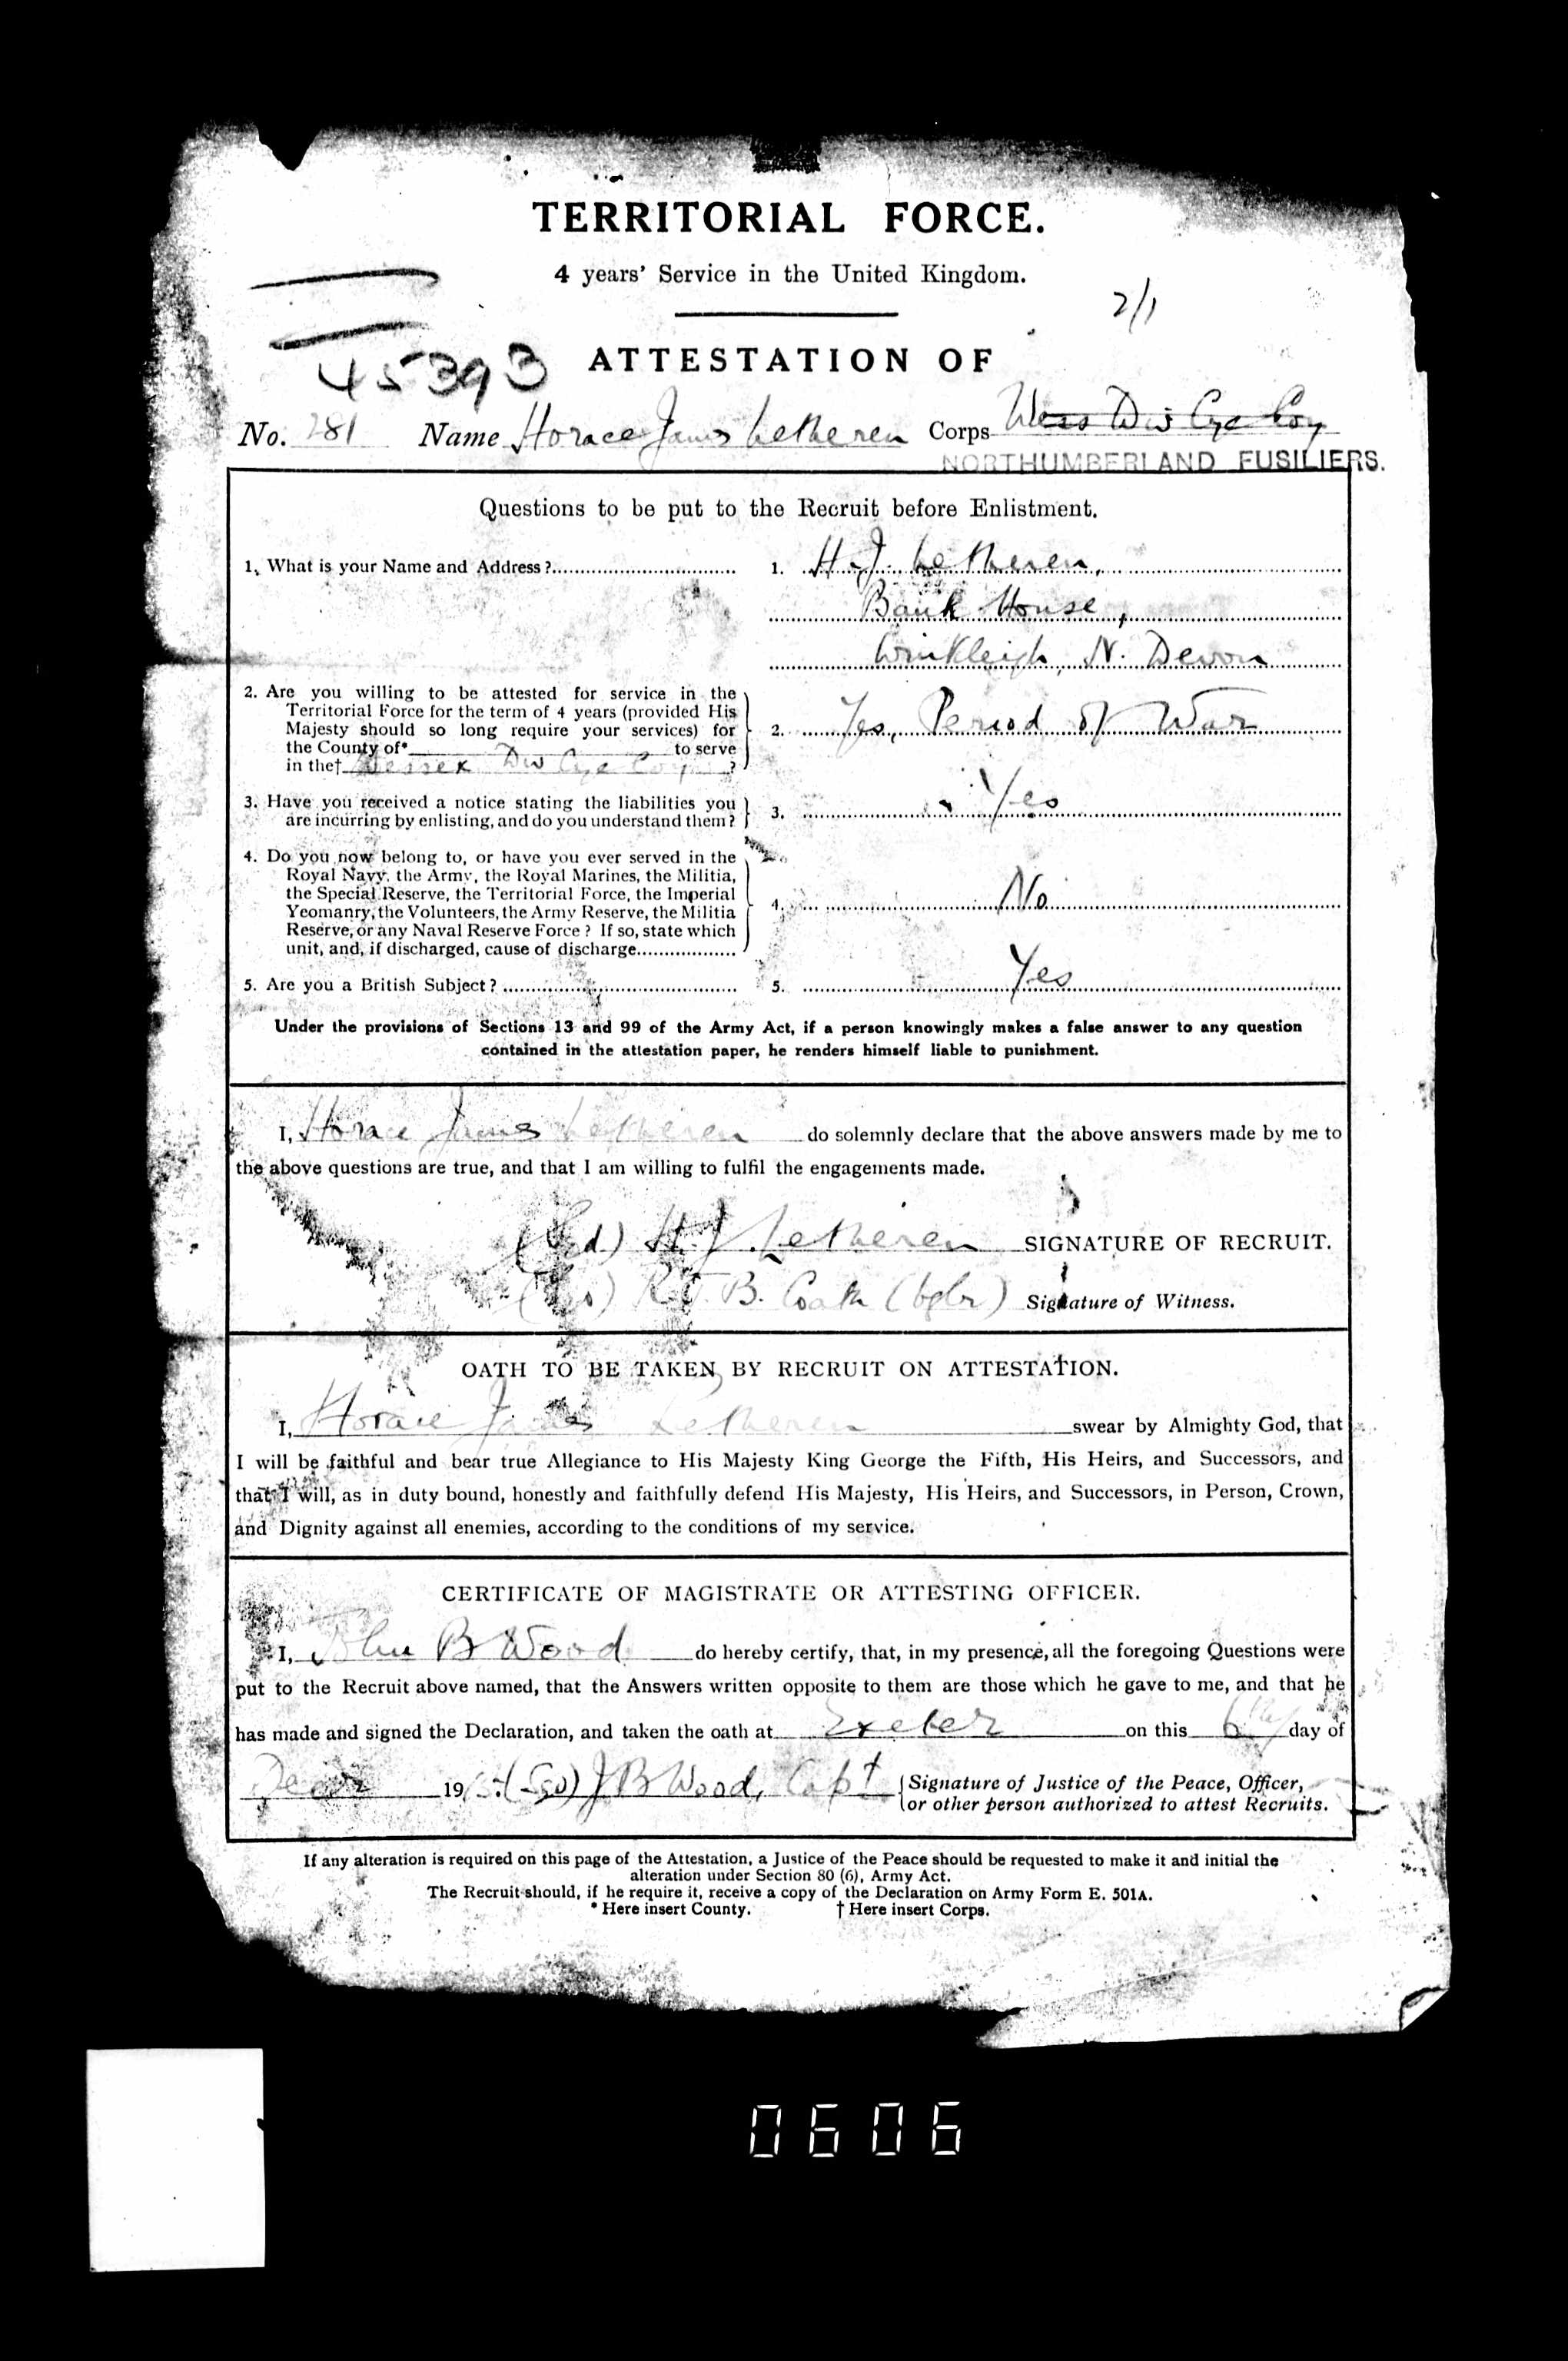 TERRITORIAL FORCE.
4 years' Service in the United Kingdom.
2/1
ATTESTATION OF
45393
No. 281 Name Horace James Letheren Corps Wess Div Cyc Coy
NORTHUMBERLAND FUSILIERS.
Questions to be put to the Recruit before Enlistment.
1. What is your Name and Address? 1. H. J. Letheren,
Bank House,
Winkleigh, N. Devon
2. Are you willing to be attested for service in the
Territorial Force for the term of 4 years (provided His
Majesty should so long require your services) for
the County of* to serve
in the† Wessex Div Cyc Coy ?
2. Yes, Period of War
3. Have you received a notice stating the liabilities you
are incurring by enlisting, and do you understand them?
3. Yes
4. Do you now belong to, or have you ever served in the
Royal Navy, the Army, the Royal Marines, the Militia,
the Special Reserve, the Territorial Force, the Imperial
Yeomanry, the Volunteers, the Army Reserve, the Militia
Reserve, or any Naval Reserve Force? If so, state which
unit, and, if discharged, cause of discharge
4. No
5. Are you a British Subject? 5. Yes
Under the provisions of Sections 13 and 99 of the Army Act, if a person knowingly makes a false answer to any question
contained in the attestation paper, he renders himself liable to punishment.
I, Horace James Letheren do solemnly declare that the above answers made by me to
the above questions are true, and that I am willing to fulfil the engagements made.
(Sgd.) H. J. Letheren SIGNATURE OF RECRUIT.
R. J. B. Coath (bglr) Signature of Witness.
OATH TO BE TAKEN BY RECRUIT ON ATTESTATION.
I, Horace James Letheren swear by Almighty God, that
I will be faithful and bear true Allegiance to His Majesty King George the Fifth, His Heirs, and Successors, and
that I will, as in duty bound, honestly and faithfully defend His Majesty, His Heirs, and Successors, in Person, Crown,
and Dignity against all enemies, according to the conditions of my service.
CERTIFICATE OF MAGISTRATE OR ATTESTING OFFICER.
I, John B Wood do hereby certify, that, in my presence, all the foregoing Questions were
put to the Recruit above named, that the Answers written opposite to them are those which he gave to me, and that he
has made and signed the Declaration, and taken the oath at Exeter on this 6th day of
Decr 1915. (Sgd) J B Wood, Capt Signature of Justice of the Peace, Officer,
or other person authorized to attest Recruits.
If any alteration is required on this page of the Attestation, a Justice of the Peace should be requested to make it and initial the
alteration under Section 80 (6), Army Act.
The Recruit should, if he require it, receive a copy of the Declaration on Army Form E. 501A.
* Here insert County. † Here insert Corps.
0606